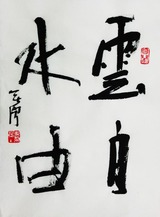 雲自
水由